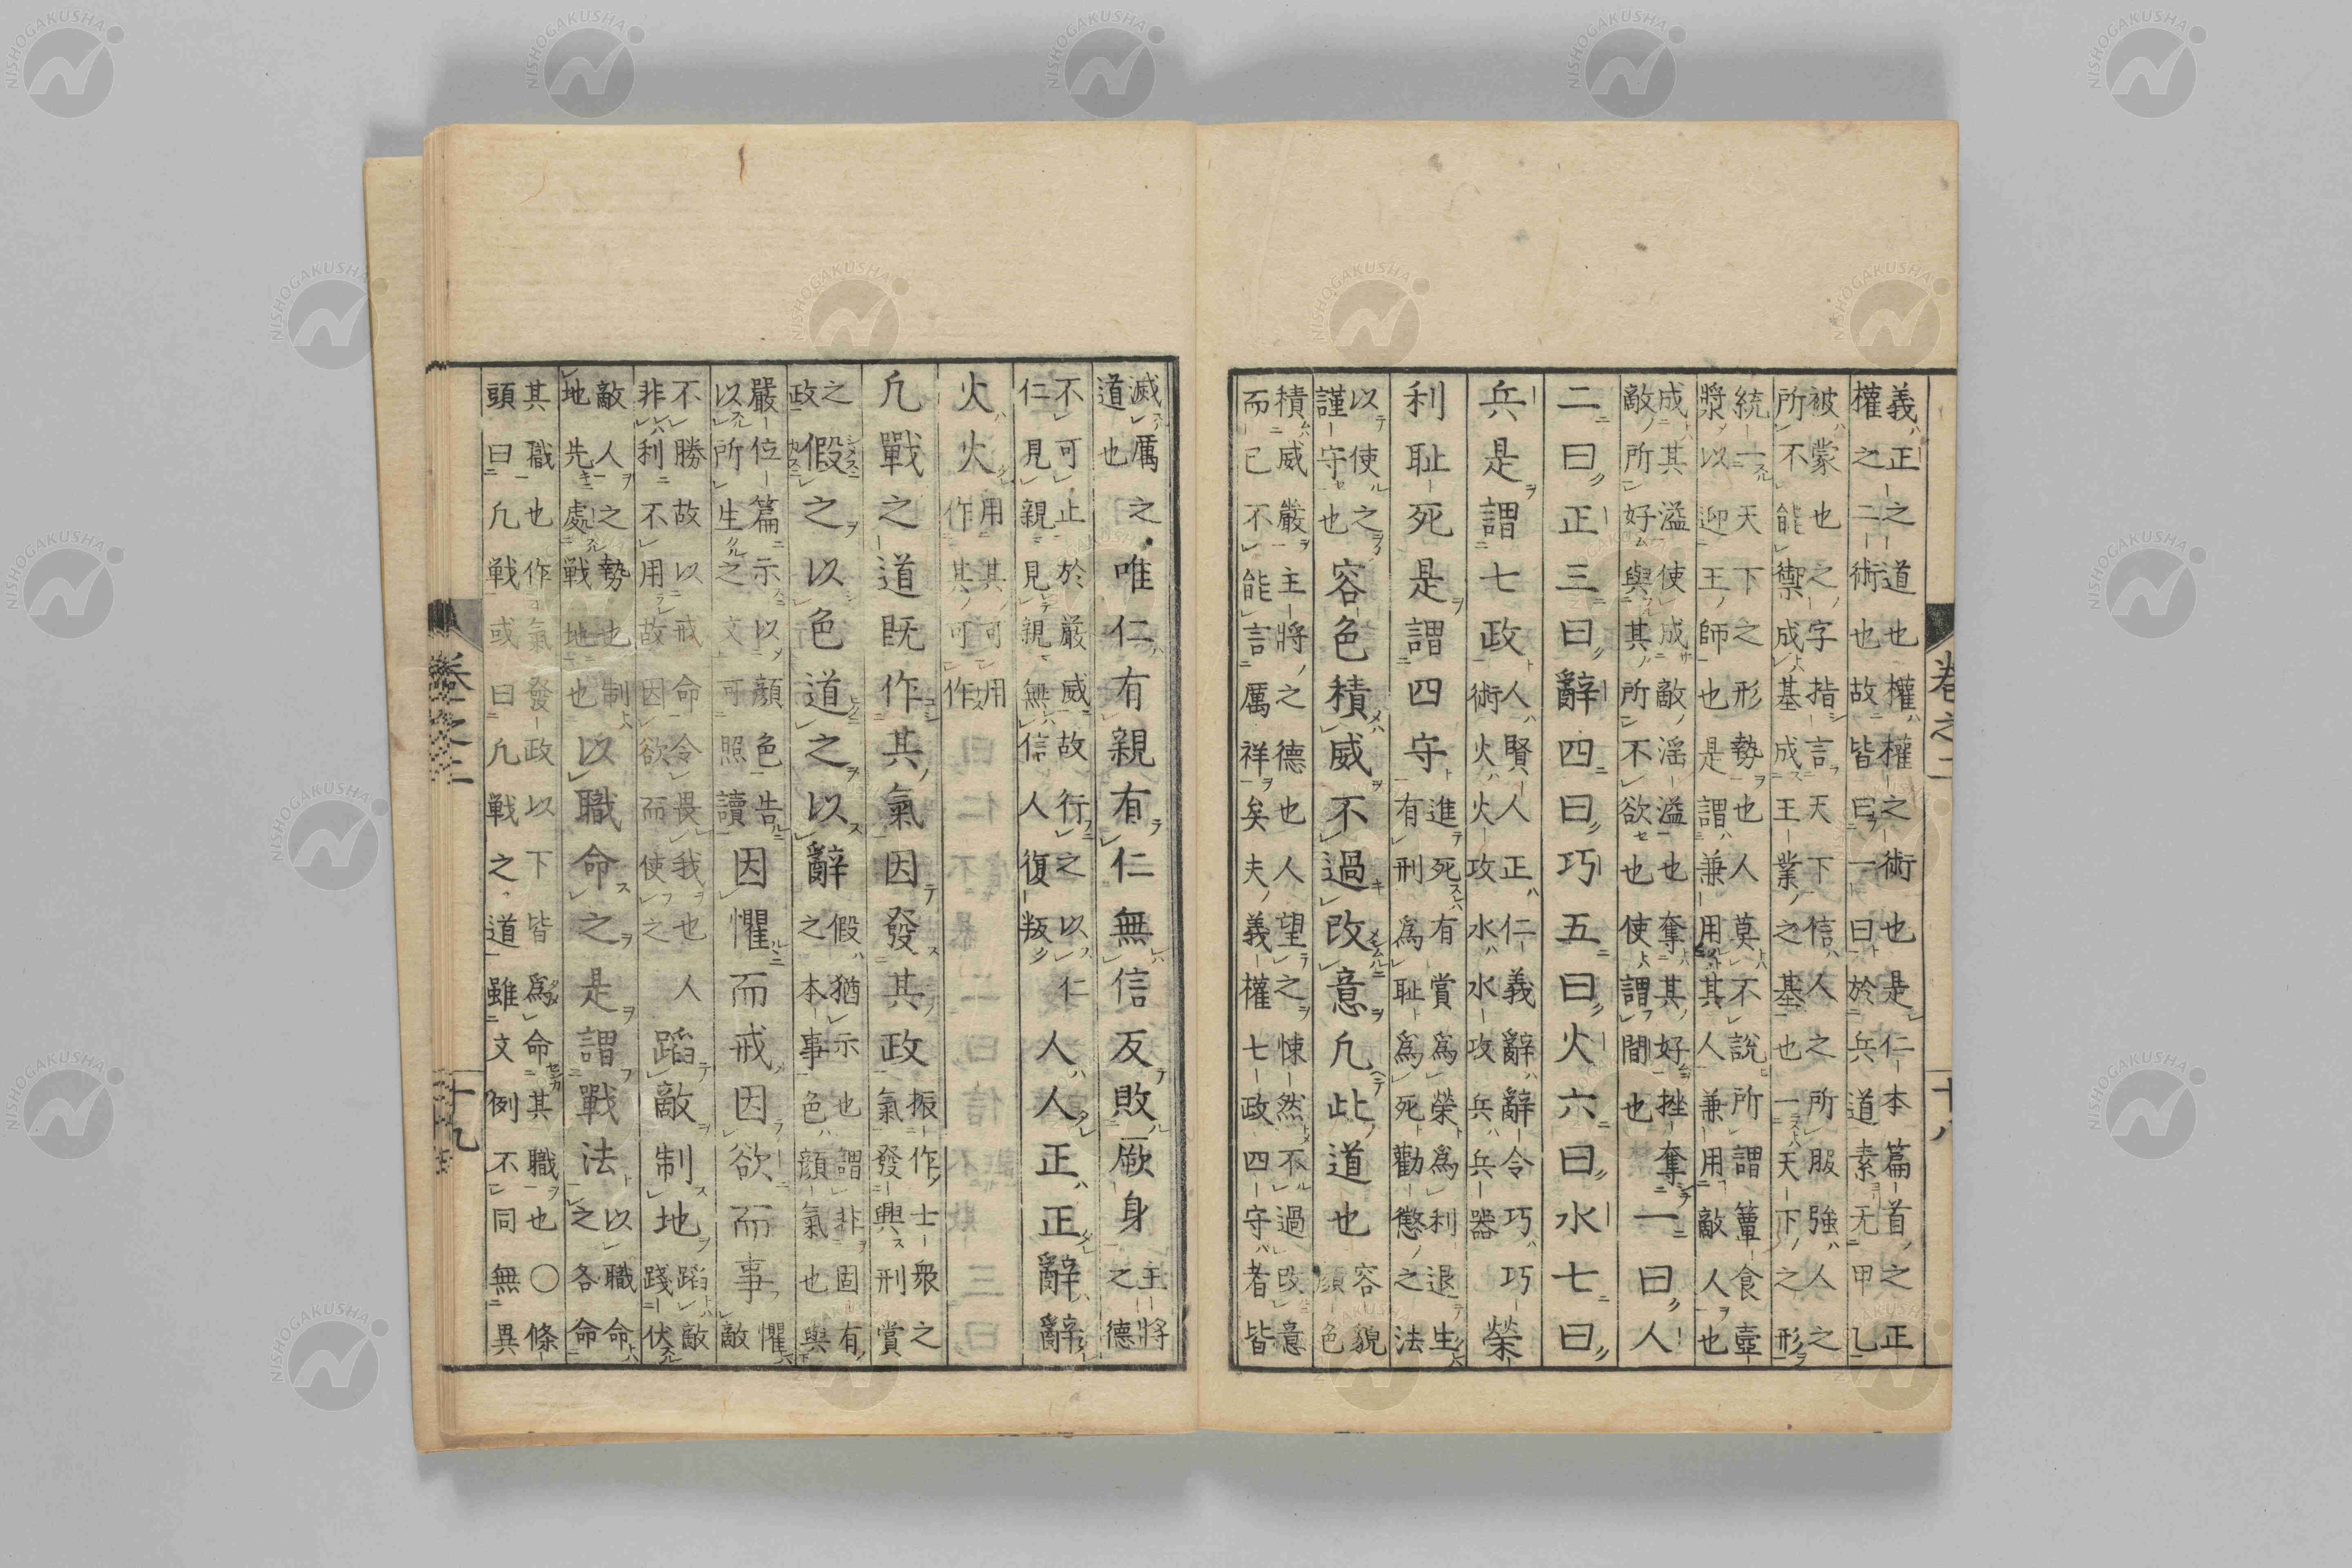 義正之道也權權之術也是仁本篇首之正
權之二術也故皆曰一曰於兵道素无甲乙
被蒙也之字指言天下信人之所服強人之
所不能禦成基成王業之基也一天下之形
統一天下之形勢也人莫不說所謂簞食壺
漿以迎王師也是謂兼用其人兼用敵人也
成其溢使成敵淫溢也奪其好挫奪
敵所好與其所不欲也使謂間也 一曰人
二曰正三曰辭四曰巧五曰火六曰水七曰
兵是謂七政 人賢人正仁義辭辭令巧巧
術火火攻水水攻兵兵器 榮
利耻死是謂四守 進死有賞為榮為利退生
有刑為耻為死勸懲之法
以使之
謹守也 容色積威不過改意凢此道也 容貌
顔色
積威嚴主將之德也人望之悚然不過改意
而已不能言厲祥矣夫義權七政四守者皆
卷之二
十八
滅厲之唯仁有親有仁無信反敗厥身 王將
之德
道也
不可止於嚴威故行之以仁
仁見親見親無信人復叛 人人正正辭辭
火火 用其可用
作其可作
凢戰之道既作其氣因發其政 振作士衆之
氣發興刑賞
之
政 假之以色道之以辭 假猶示也謂非固有
之本事色顔氣也與
嚴位篇示以顔色告
以所生之文可照讀 因懼而戒因欲而事 懼
敵
不勝故以戒命令畏我也
非利不用故因欲而使之 人 蹈敵制地 蹈敵
踐伏
敵人之勢也制
地先處戰地也 以職命之是謂戰法 以職命
之各命
其職也作氣發政以下皆為命其職也〇條
頭曰凢戦或曰凢戦之道雖文例不同無異
卷之二
十九